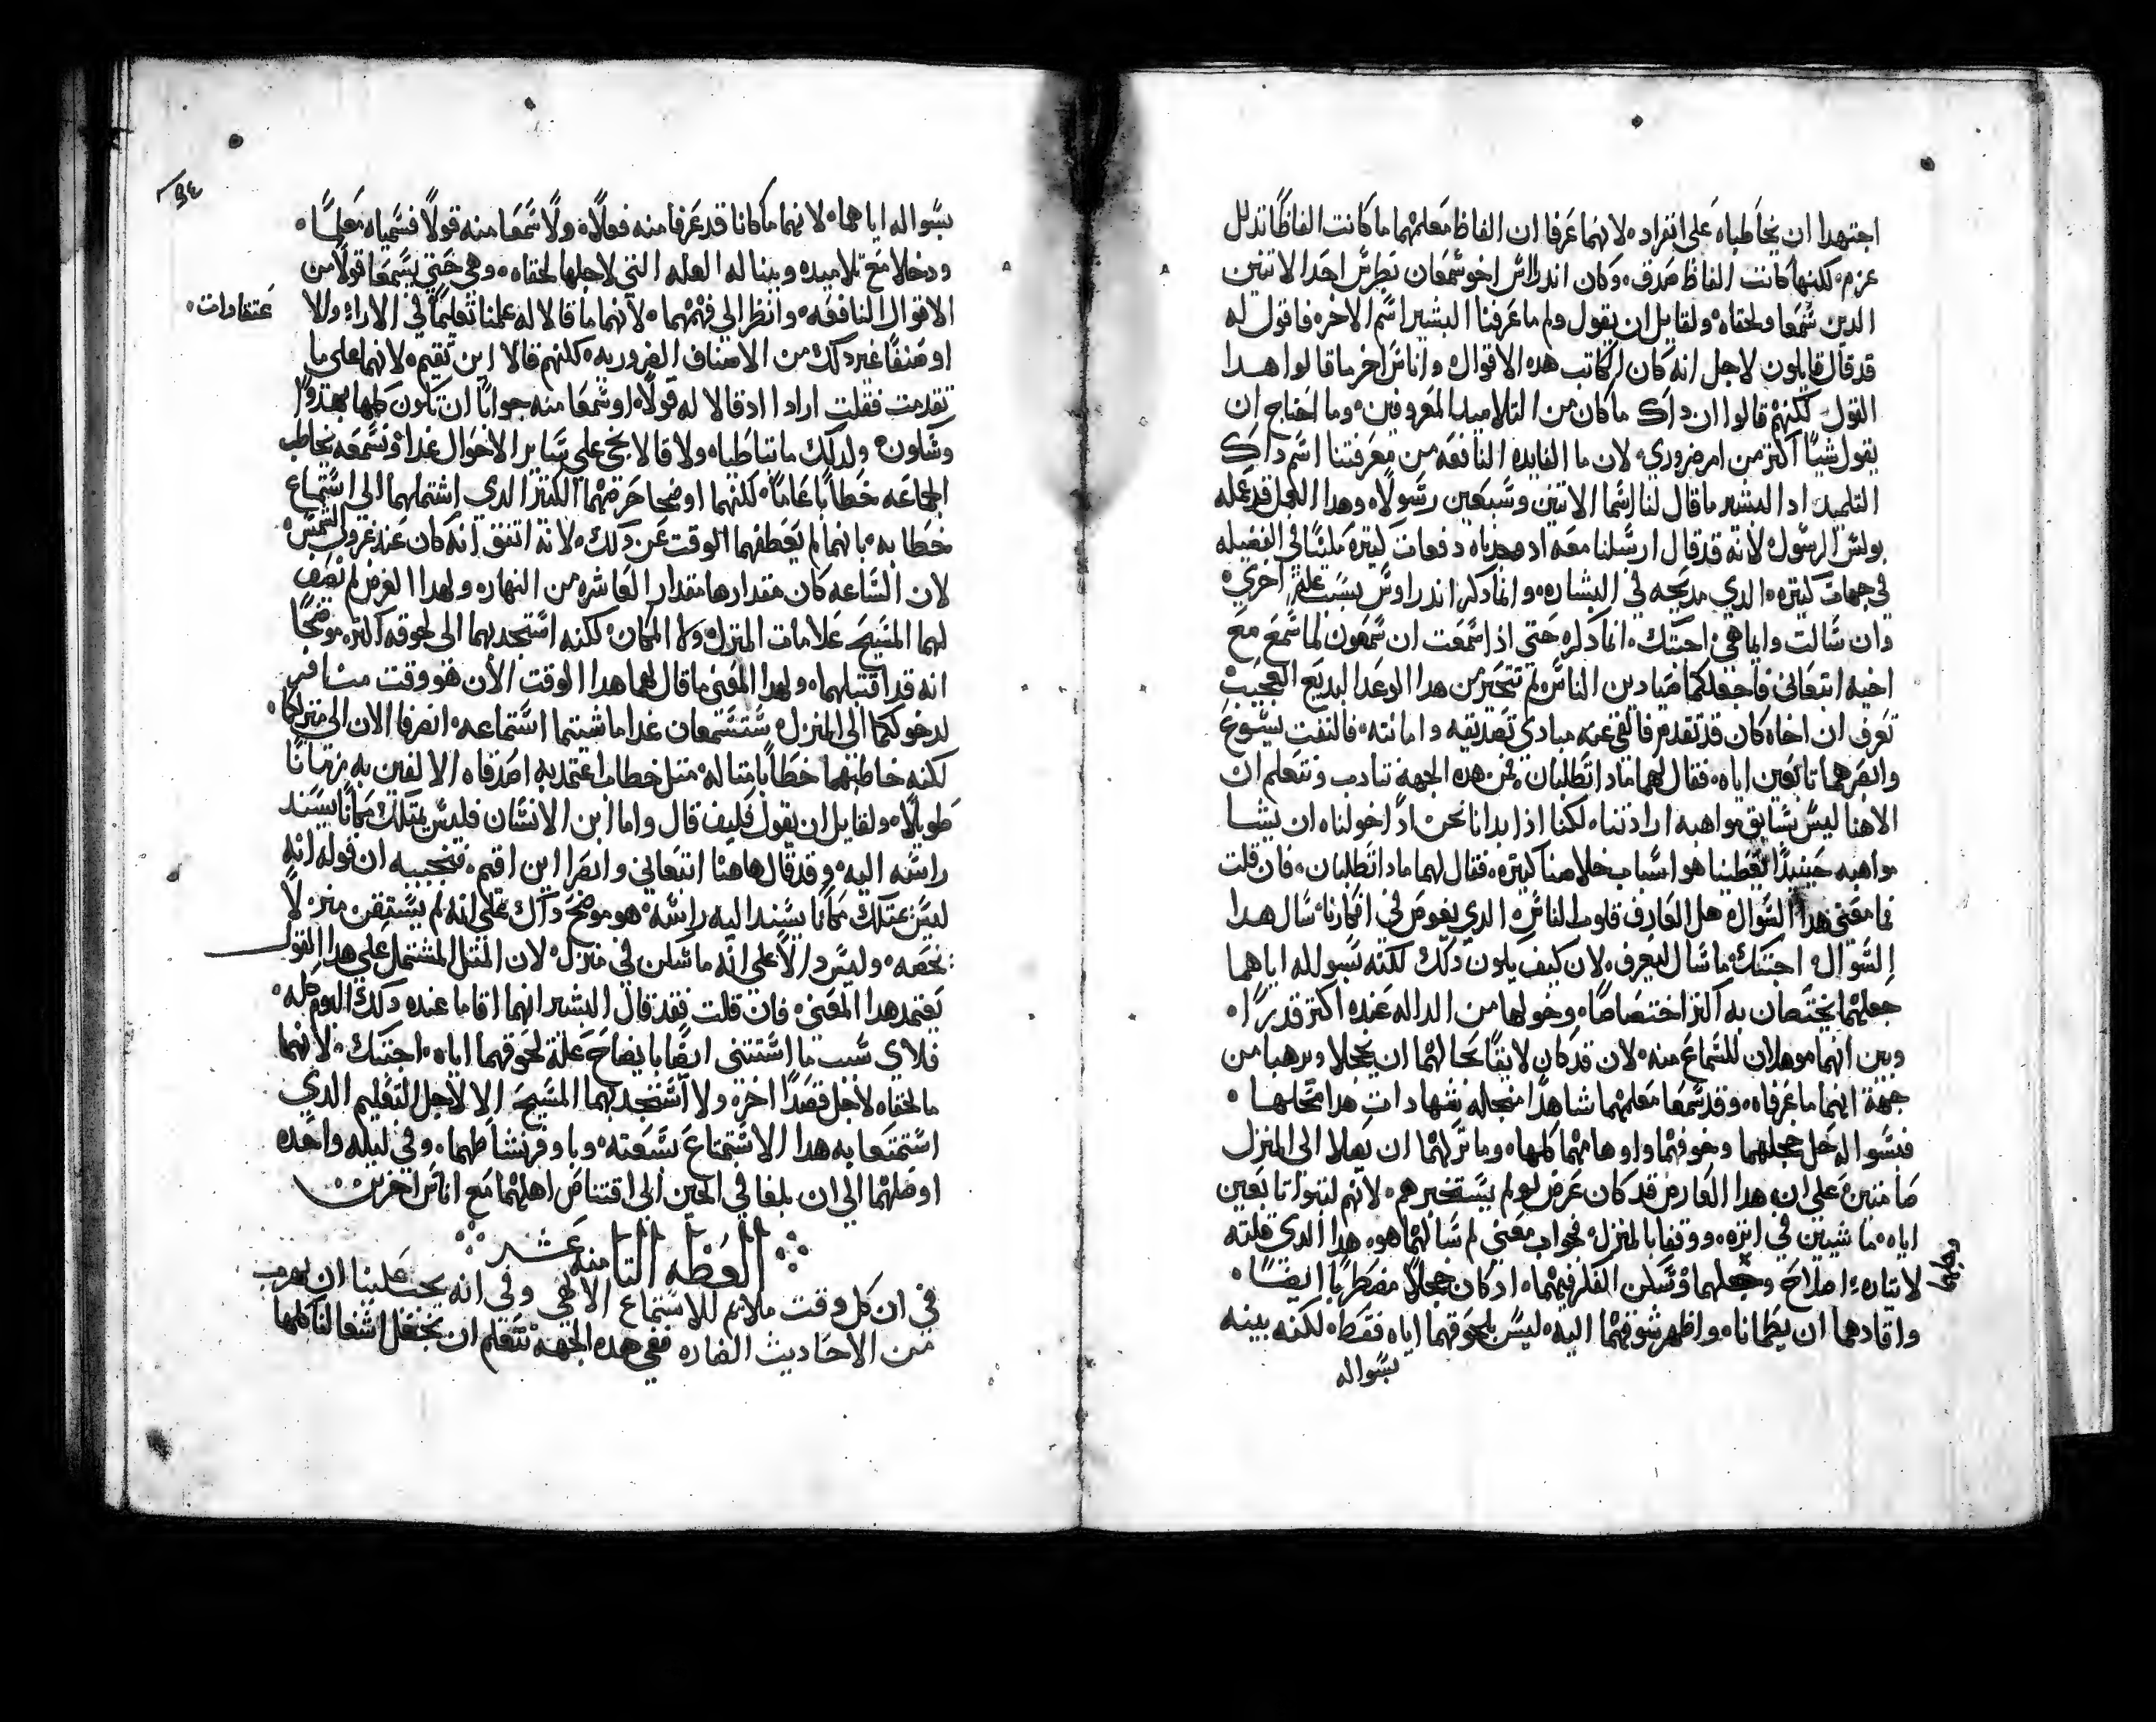 اجتهدا ان يخاطباه على انفراد، لانهما عرفا ان الفاظ معلمهما ما كانت الفاظًا تدلل
عزم، لكنها كانت الفاظ صدق، وكان اندراس اخو شمعان بطرس احدا الاتنين
الدين سمعا ولحقاه، ولقايل ان يقول ولم ما عرفنا البشير اسم الاخر، فاقول له
قد قال قايلون لاجل انه كان الكاتب هده الاقوال، واناس اخر ما قالوا هدا
القول، لكنهم قالوا ان داك ما كان من التلاميد المعروفين، وما احتاج ان
يقول شيًا اكتر من امر ضروري، لان ما الفايده النافعه من معرفتنا اسم داك
التلميد، اد البشير ما قال لنا اسما الاتنين وسبعين رسولاً، وهدا العمل قد عمله
بولس الرسول، لانه قد قال ارسلنا معه اد وجدناه دفعات كتيره مليًا في الفضيله
في جهات كتيره، الدي مديحه في البشاره، وانما دكر اندراوس بسبب علة اخرى،
وان سالت وايما هي، اجبتك، انما دكره حتى ادا سمعت ان شمعون لما سمع مع
اخيه اتبعاني فاجعلكما صيادين الناس، لم تتحير من هدا الوعد البديع العجيب
تعرف ان اخاه كان قد تقدم فالقى عنه مبادي تصديقه وامانته، فالتفت يسوع
وابصرهما تابعين اياه، فقال لهما مادا تطلبان، فمن هده الجهه نتادب ونتعلم ان
الاهنا ليس بسابق مواهبه ارادتنا، لكنا ادا بدانا نحن ادا خولناه ان يشا
مواهبه حينيدًا يعطينا هو اسباب خلاصنا كتيره، فقال لهما مادا تطلبان، فان قلت
فما معنى هدا السوال، هل العارف قلوب الناس، الدي يغوص في افكارنا، سال هدا
السوال، اجبتك، ما سال ليعرف، لان كيف يكون دلك، لكنه بسواله اياهما
جعلهما يختصان به اكتر اختصاصًا، وخولهما من الداله عنده اكتر قدرًا،
وبين انهما موهلان للسماع منه، لان قد كان لايقًا بحالهما ان يخجلا ويرهبا من
جهة انهما ما عرفاه، وقد سمعا معلمهما شاهدًا من جله شهادات هدا محلها،
فبسواله حل خجلهما وخوفهما واوهامهما كلها، وما تركهما ان يصلا الى المنزل
صامتين، على ان هدا العارض قد كان عرض لو لم يستخبرهم، لانهم لبتوا تابعين
اياه، ماشيين في اتره، ووقفا بالمنزل، فجواب معنى لم سالهما هو، هدا الدي قلته
لايتاره اصلاح وجعلهما وتسكن الفكر فيهما، اد كان خجلاً مضطربًا ايضًا،
وجلهما
واقادهما ان يطمانا، واظهر شوقهما اليه، ليس بلحوقهما اياه فقط، لكنه بينه
بسواله
٩٤
بسواله اياهما، لانهما ما كانا قد عرفا منه فعلاً، ولا سمعا منه قولاً فسمياه معلمًا،
ودخلا مع تلاميده وبينا له العله التي لاجلها لحقاه، وهي حتى يسمعا قولاً من
الاقوال النافعه، وانظر الى فهمهما، لانهما ما قالا له علمنا تعليمًا في الاراء ولا
عتقادات،
او صنفًا غير دلك من الاصناف الضروريه، لكنهم قالا اين تقيم، لانهما على ما
تقدمت فقلت ارادا اد قالا له قولاً، او سمعا منه جوابًا ان تكون كلها بهدوًا
وسكون، ولدلك ما تباطيا، ولا قالا نجي على ساير الاحوال غدا، ونسمعه يخاطب
الجماعه خطابًا عاميًا، لكنهما اوضحا حرصهما الكتير الدي اشتملهما الى استماع
خطابه، بانهما لم يعطفهما الوقت عن دلك، لانه اتفق انه كان عند غروب الشمس
لان الساعه كان مقدارها مقدار العاشره من النهار، ولهدا الغرض لم يصف
لهما المسيح علامات المنزل، ولا المكان، لكنه استجدبهما الى لحوقه اكتر، موضحًا
انه قد اقتبلهما، ولهدا المعنى ما قال لهما هدا الوقت الان هو وقت مسافر
لدخولكما الى المنزل، ستسمعان غدا ما شيتما استماعه، انصرفا الان الى منزلكما،
لكنه خاطبهما خطابًا متاله، متل خطاب اعتمد به اصدقاه الالفين به زمانًا
طويلاً، ولقايل ان يقول فكيف قال واما ابن الانسان فليس يمتلك مكانًا يسند
راسه اليه، وقد قال هاهنا اتتعاني وابصرا اين اقيم، فنجيبه ان قوله انه
ليس يمتلك مكانًا يسند اليه راسه، هو موضح داك على انه لم يستقن منزلاً
يخصه، وليس دالاً على انه ما سكن في منزل، لان المتل المشتمل على هدا القول
يعتمد هدا المعنى، فان قلت فقد قال البشير انهما اقاما عنده دلك اليوم كله،
فلاى سبب ما استتنى ايضًا بايضاح علة لحوقهما اياه، اجبتك، لانهما
ما لحقاه لاجل قصدًا اخر، ولا استجدبهما المسيح الا لاجل التعليم الدي
استمتعا به هدا الاستمتاع بسعته، وباوفر نشاطهما، وفي ليله واحده
اوصلهما الى ان بلغا في الحين الى اقتناص اهلهما مع اناس اخرين،
العظه التامنه عشر
في ان كل وقت ملايم للاستماع الالهي وفي انه يحصلنا ان نهرب
من الاحاديث الضاره ففي هده الجهه نتعلم ان نجعل اشغالنا كلها